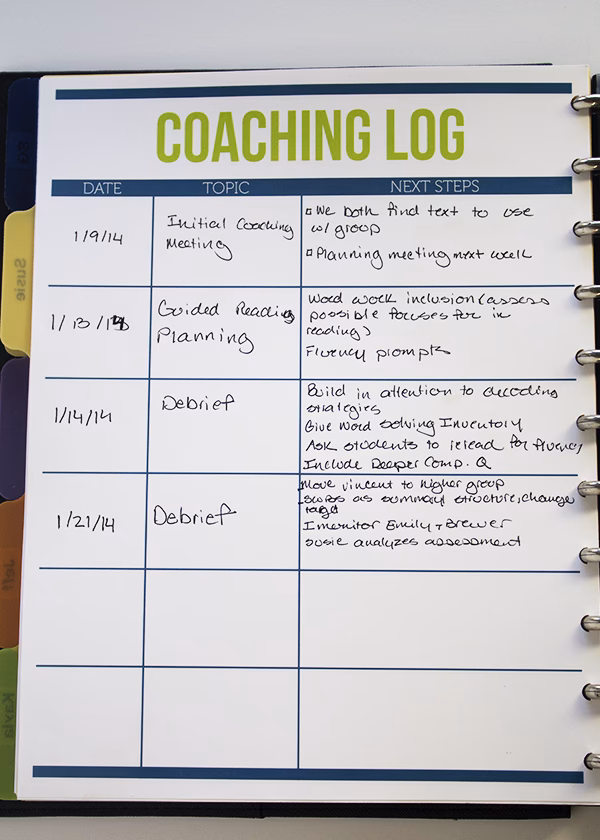 COACHING LOG
DATE TOPIC NEXT STEPS
1/9/14
Initial Coaching
Meeting
We both find text to use
w/ group
Planning meeting next week
1/13/
Guided Reading
Planning
Word work inclusion (assess
possible focuses for in
reading)
Fluency prompts
1/14/14
Debrief
Build in attention to decoding
strategies
Give Word Solving Inventory
Ask students to reread for fluency
Include Deeper Comp. Q
1/21/14
Debrief
Move Vincent to higher group
as summary structure, change
target
I monitor Emily + Brewer
Susie analyzes assessment
Susie
Jeff
Kayla